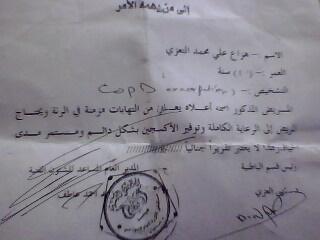 إلى من يهمه الأمر
الاسم :- هزاع علي محمد التعزي
العمر :- سنة
التشخيص :- COPD
المريض المذكور اسمه أعلاه يعاني من التهابات مزمنة في الرئة ويحتاج
المريض إلى الرعاية الكاملة وتوفير الأكسجين بشكل دائم ومستمر مدى
حياته هذا لا يعتبر تقريراً جنائياً //////////
رئيس قسم الباطنية
المدير العام المساعد للشئون الفنية
أحمد عاطف